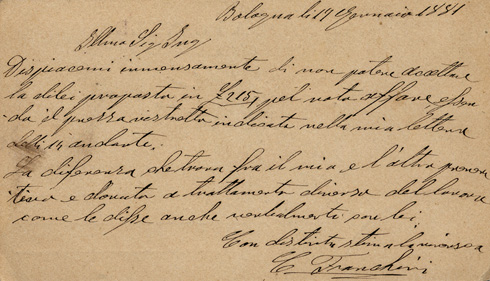 Bologna li 19 Gennaio 1891
Illmo Sig Ing
Dispiacemi immensamente di non potere accettare
la di lei proposta in £ 215, pel noto affare, essen
do il prezzo ristretto indicato nella mia lettera
delli 14 andante.
La diferenza che trova fra il mio e l'altro preven
tivo è dovuta a trattamento diverso del lavoro
come le dissi anche verbalmente con lei.
Con distinta stima la riverisco
C. Franchini